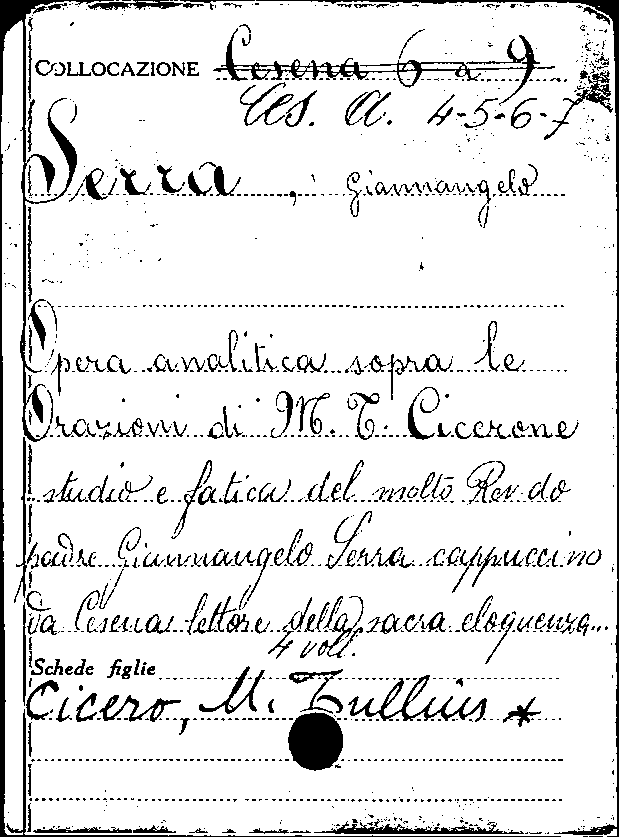 COLLOCAZIONE Cesena 6 a 9
Ces. A. 4-5-6-7
Serra, Giannangelo
Opera analitica sopra le
Orazioni di M. T. Cicerone
studio e fatica del molto Rev.do
padre Giannangelo Serra cappuccino
da Cesena lettore della sacra eloquenza...
4 voll.
Schede figlie
Cicero, M. Tullius *